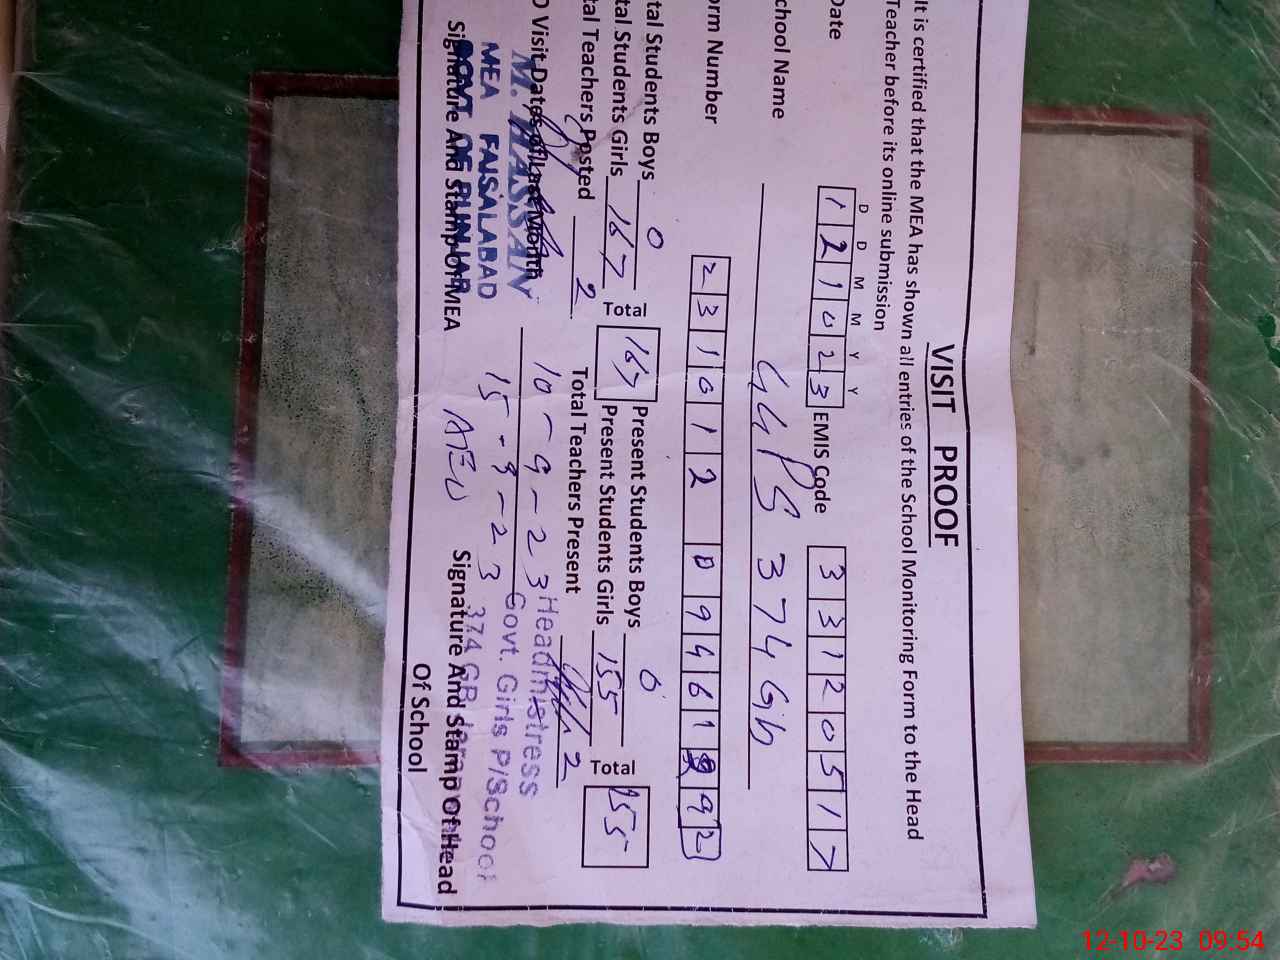 VISIT PROOF
It is certified that the MEA has shown all entries of the School Monitoring Form to the Head
Teacher before its online submission
D D M M Y Y
Date 1 2 1 0 2 3 EMIS Code 3 3 1 2 0 5 1 7
chool Name GGPS 374 Gb
orm Number 2 3 1 0 1 2 0 9 9 6 1 9 2
tal Students Boys 0 Total 167 Present Students Boys 0 Total 155
tal Students Girls 167 Present Students Girls 155
tal Teachers Posted 2 Total Teachers Present 2
O Visit Dates of Last Month 10-9-23
15-9-23
AEO
M. HASSAN
MEA FAISALABAD
GOVT OF PUNJAB
Signature And Stamp Of MEA
Headmistress
Govt. Girls P/School
374 GB
Signature And Stamp Of Head
Of School
12-10-23 09:54